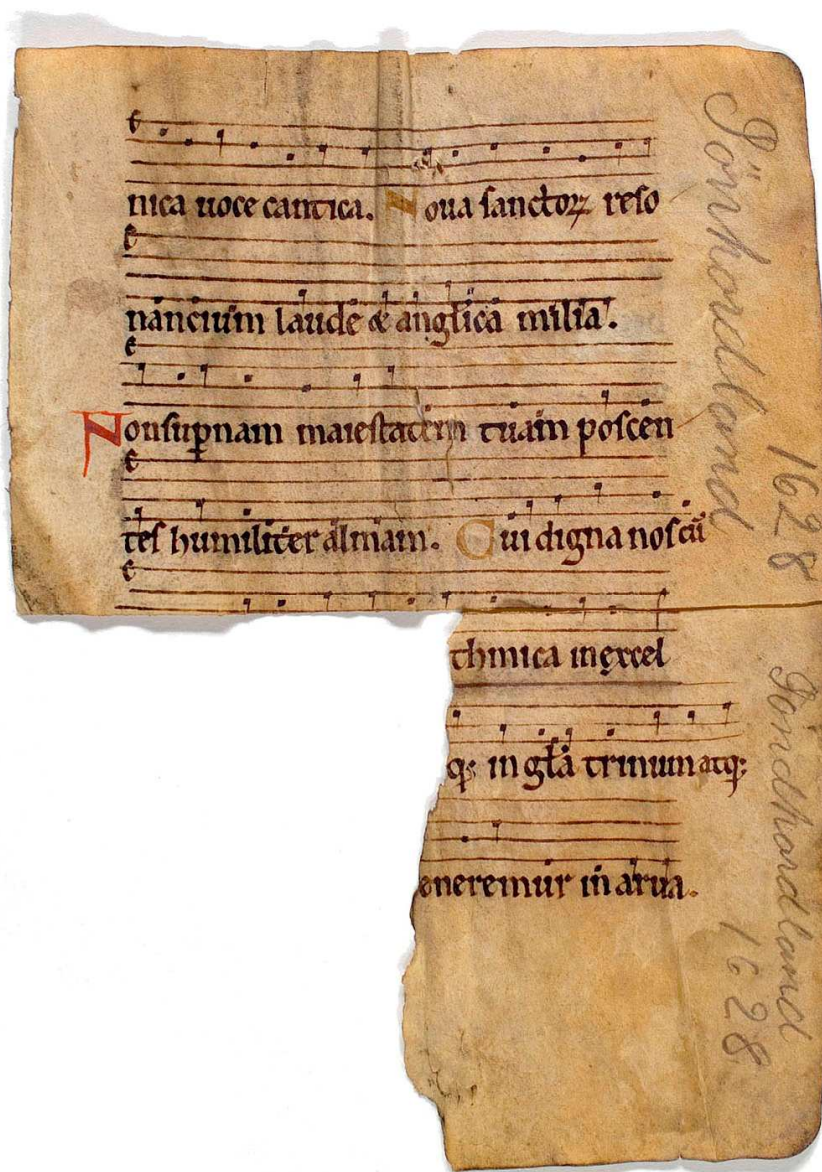 nica uoce cantica. Noua sanctoꝝ reso
nancium laude & anglica milia.
Nonsuꝑnam maiestatem tuam poscen
tes humiliter almam. Cui digna noscū
thmica inexcel
qꝫ inglā trinum atqꝫ
eneremur in arua.
Sönhordland 1628
Söndhordland 1628